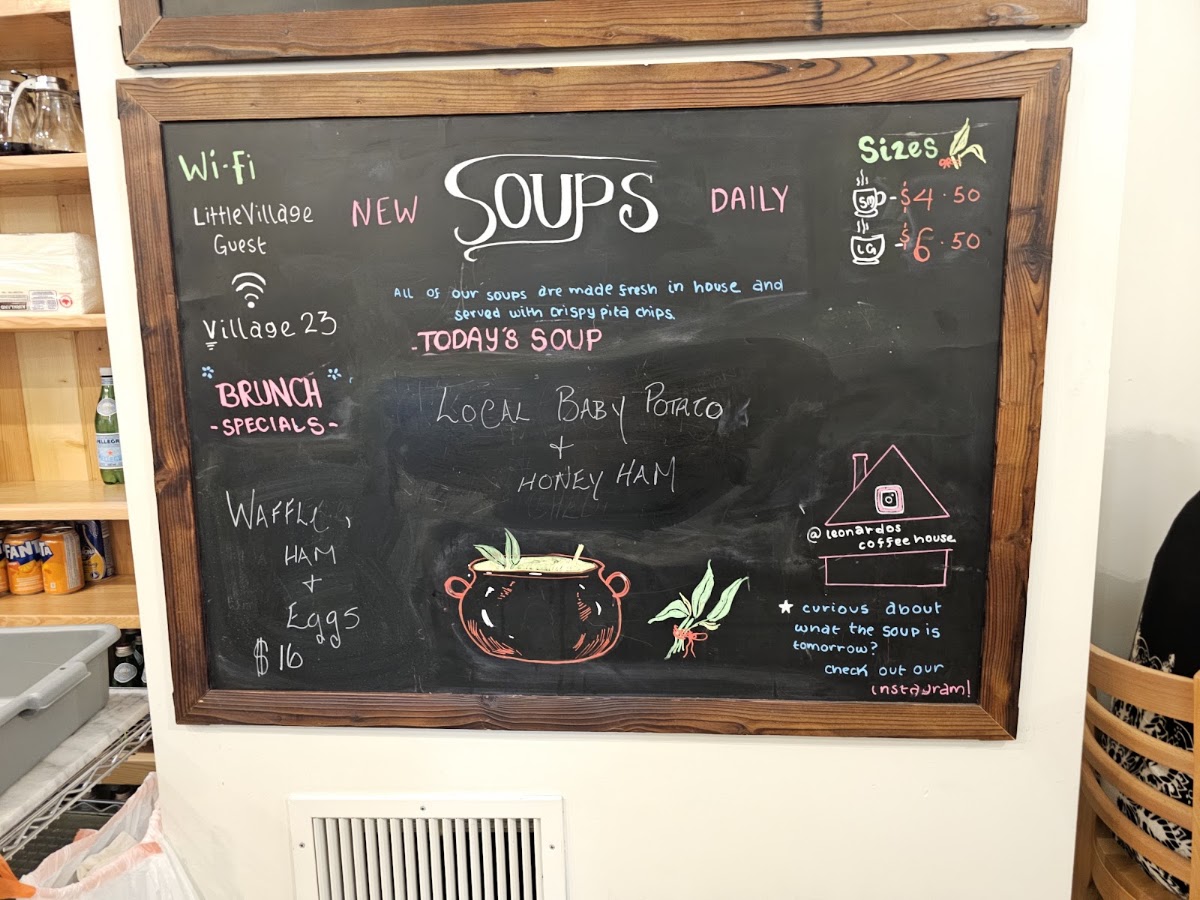 Wi-fi
LittleVillage
Guest
Village 23
BRUNCH
-SPECIALS-
WAFFLE,
HAM
+
Eggs
$16
NEW SOUPS DAILY
All of our soups are made fresh in house and
served with crispy pita chips.
TODAY'S SOUP
LOCAL BABY POTATO
+
HONEY HAM
Sizes
SM - $4.50
LG - $6.50
@leonardos
coffeehouse
★ curious about
what the soup is
tomorrow?
check out our
instagram!
FANTA